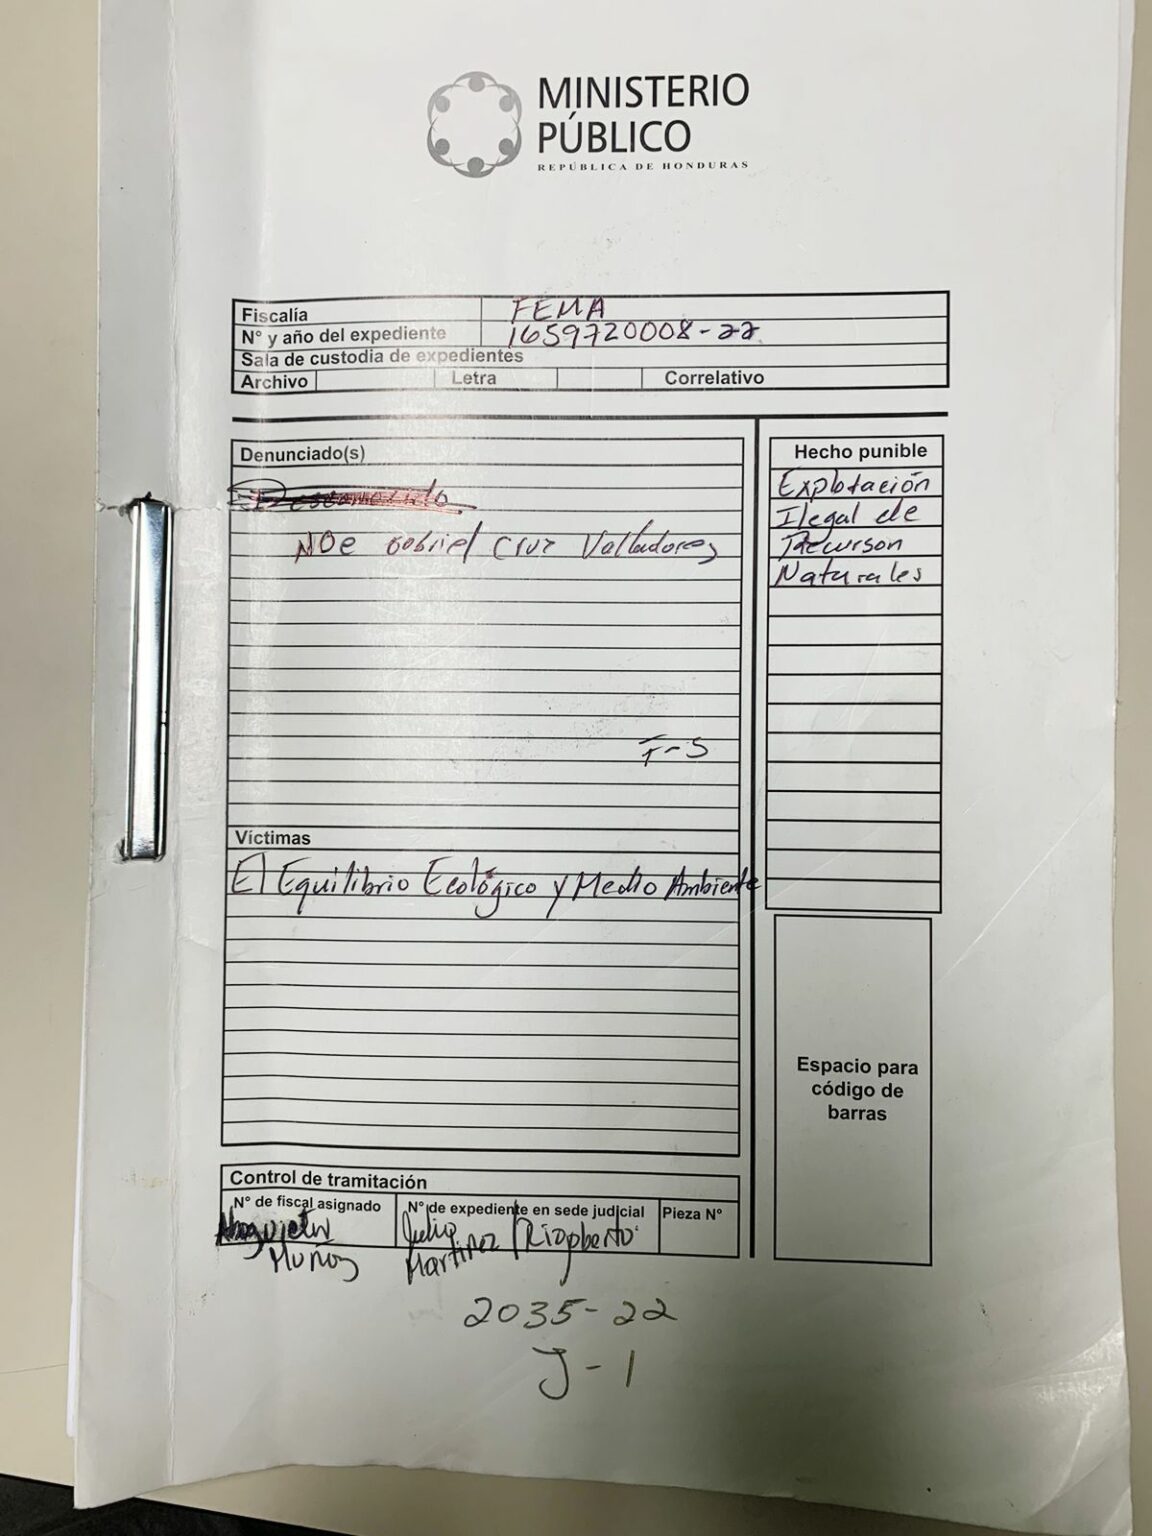 MINISTERIO
PÚBLICO
REPÚBLICA DE HONDURAS
Fiscalía FEMA
N° y año del expediente 1659720008-22
Sala de custodia de expedientes
Archivo Letra Correlativo
Denunciado(s)
NOe Gabriel Cruz Valladares
F-S
Víctimas
El Equilibrio Ecológico y Medio Ambiente
Hecho punible
Explotación
Ilegal de
Recurson
Naturales
Espacio para
código de
barras
Control de tramitación
N° de fiscal asignado N° de expediente en sede judicial Pieza N°
Julio
Muñoz Martinez
2035-22
J-1